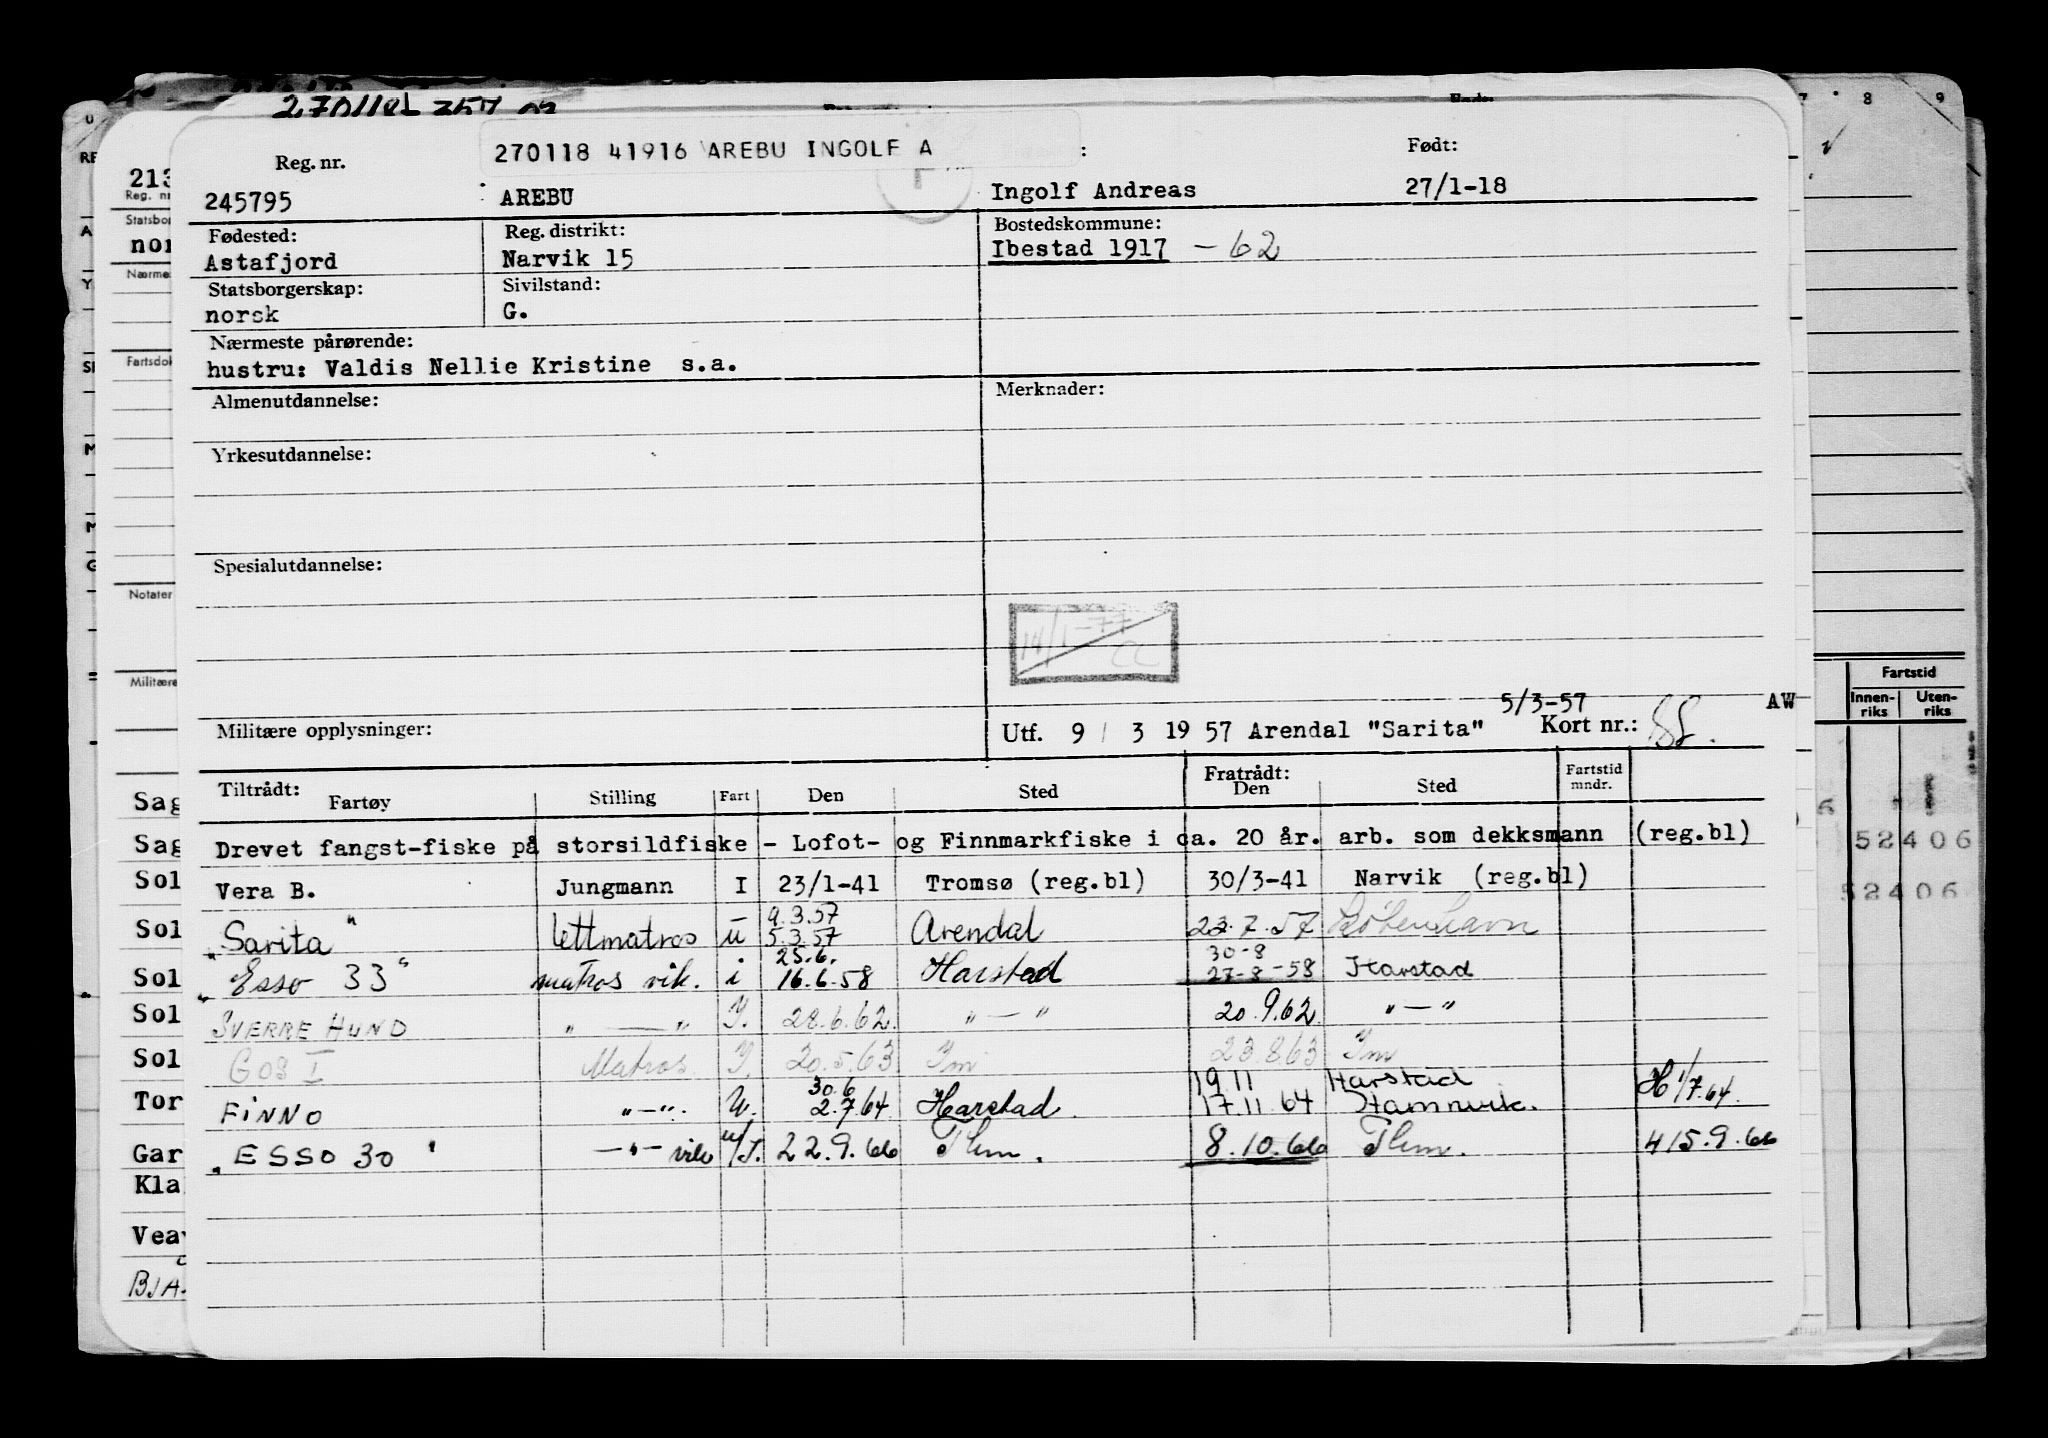 7 8 9
Reg. nr. 270118 41916 AREBU INGOLF A Født:
245795 AREBU Ingolf Andreas 27/1-18
Fødested: Reg. distrikt: Bostedskommune:
Astafjord Narvik 15 Ibestad 1917 - 62
Statsborgerskap: Sivilstand:
norsk G.
Nærmeste pårørende:
hustru: Valdis Nellie Kristine s.a.
Almenutdannelse: Merknader:
Yrkesutdannelse:
Spesialutdannelse:
14/1-77
5/3-57 AW
Militære opplysninger: Utf. 9 / 3 19 57 Arendal "Sarita" Kort nr.:
Tiltrådt: Fratrådt: Fartstid
Fartøy Stilling Fart Den Sted Den Sted mndr.
Drevet fangst-fiske på storsildfiske - Lofot- og Finnmarkfiske i ca. 20 år. arb. som dekksmann (reg.bl)
Vera B. Jungmann I 23/1-41 Tromsø (reg.bl) 30/3-41 Narvik (reg.bl)
9.3.57
"Sarita" lettmatros u 5.3.57 Arendal 23.7.57 København
25.6. 30-8
"Esso 33" matros vik. i 16.6.58 Harstad 27-8-58 Harstad
SVERRE HUND " — " I. 28.6.62. " — " 20.9.62 " — "
GOS I Matros I. 20.5.63 Tm 23.8.63 Tm
30.6 19.11 Harstad
FINNO " — ". U. 2.7.64 Harstad. 17.11.64 Hamnvik. H 1/7.64.
"ESSO 30" — " — vik u/I. 22.9.66 Thm. 8.10.66 Thm. 415.9.66
213
Reg. nr
Statsbor
nor
Nærmes
Fartsdok
Notater
Militære
Sag
Sag
Sol
Sol
Sol
Sol
Sol
Tor
Gar
Kla
Vea
BJA
Fartstid
Innen-riks Uten-riks
52406
52406